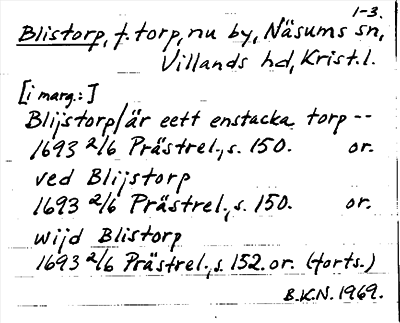 1-3.
Blistorp, f. torp, nu by, Näsums sn,
Villands hd, Krist.l.
[i marg.:]
Blijstorp/är eett enstacka torp --
1693 2/6 Prästrel., s. 150. or.
ved Blijstorp
1693 2/6 Prästrel., s. 150. or.
wijd Blistorp
1693 2/6 Prästrel., s. 152. or. (forts.)
B.K.N. 1969.